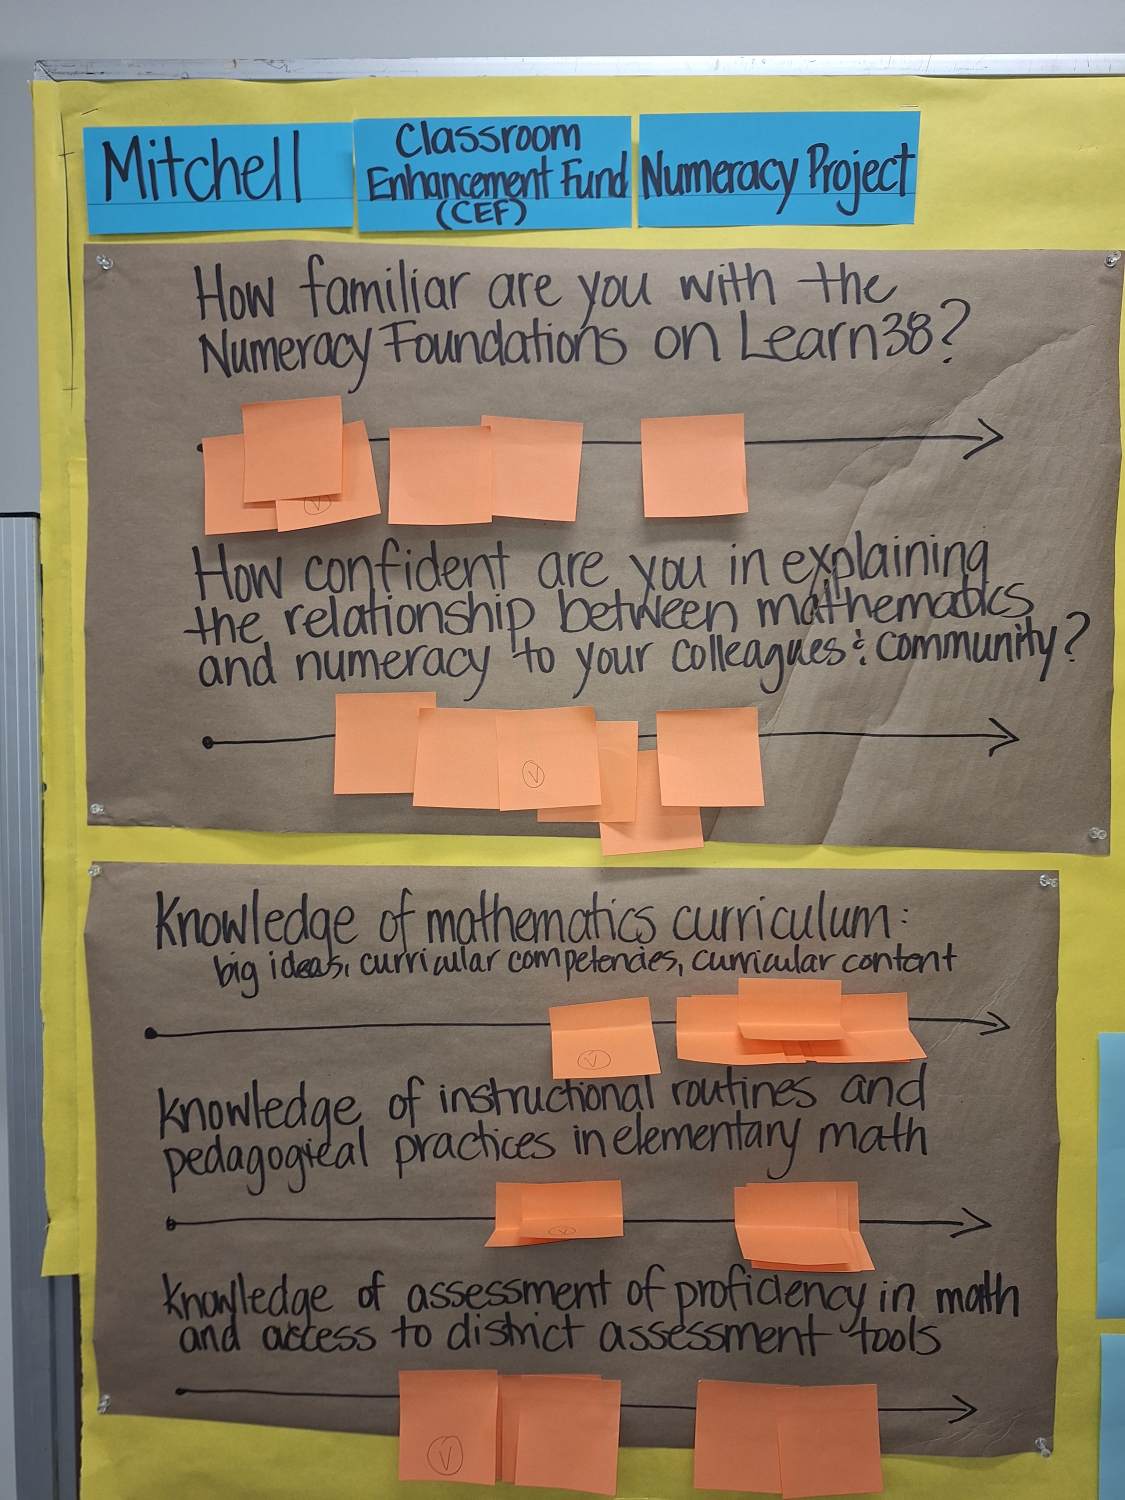 Mitchell
Classroom
Enhancement Fund
(CEF)
Numeracy Project
How familiar are you with the
Numeracy Foundations on Learn38?
V
How confident are you in explaining
the relationship between mathematics
and numeracy to your colleagues & community?
V
Knowledge of mathematics curriculum:
big ideas, curricular competencies, curricular content
V
Knowledge of instructional routines and
pedagogical practices in elementary math
V
Knowledge of assessment of proficiency in math
and access to district assessment tools
V